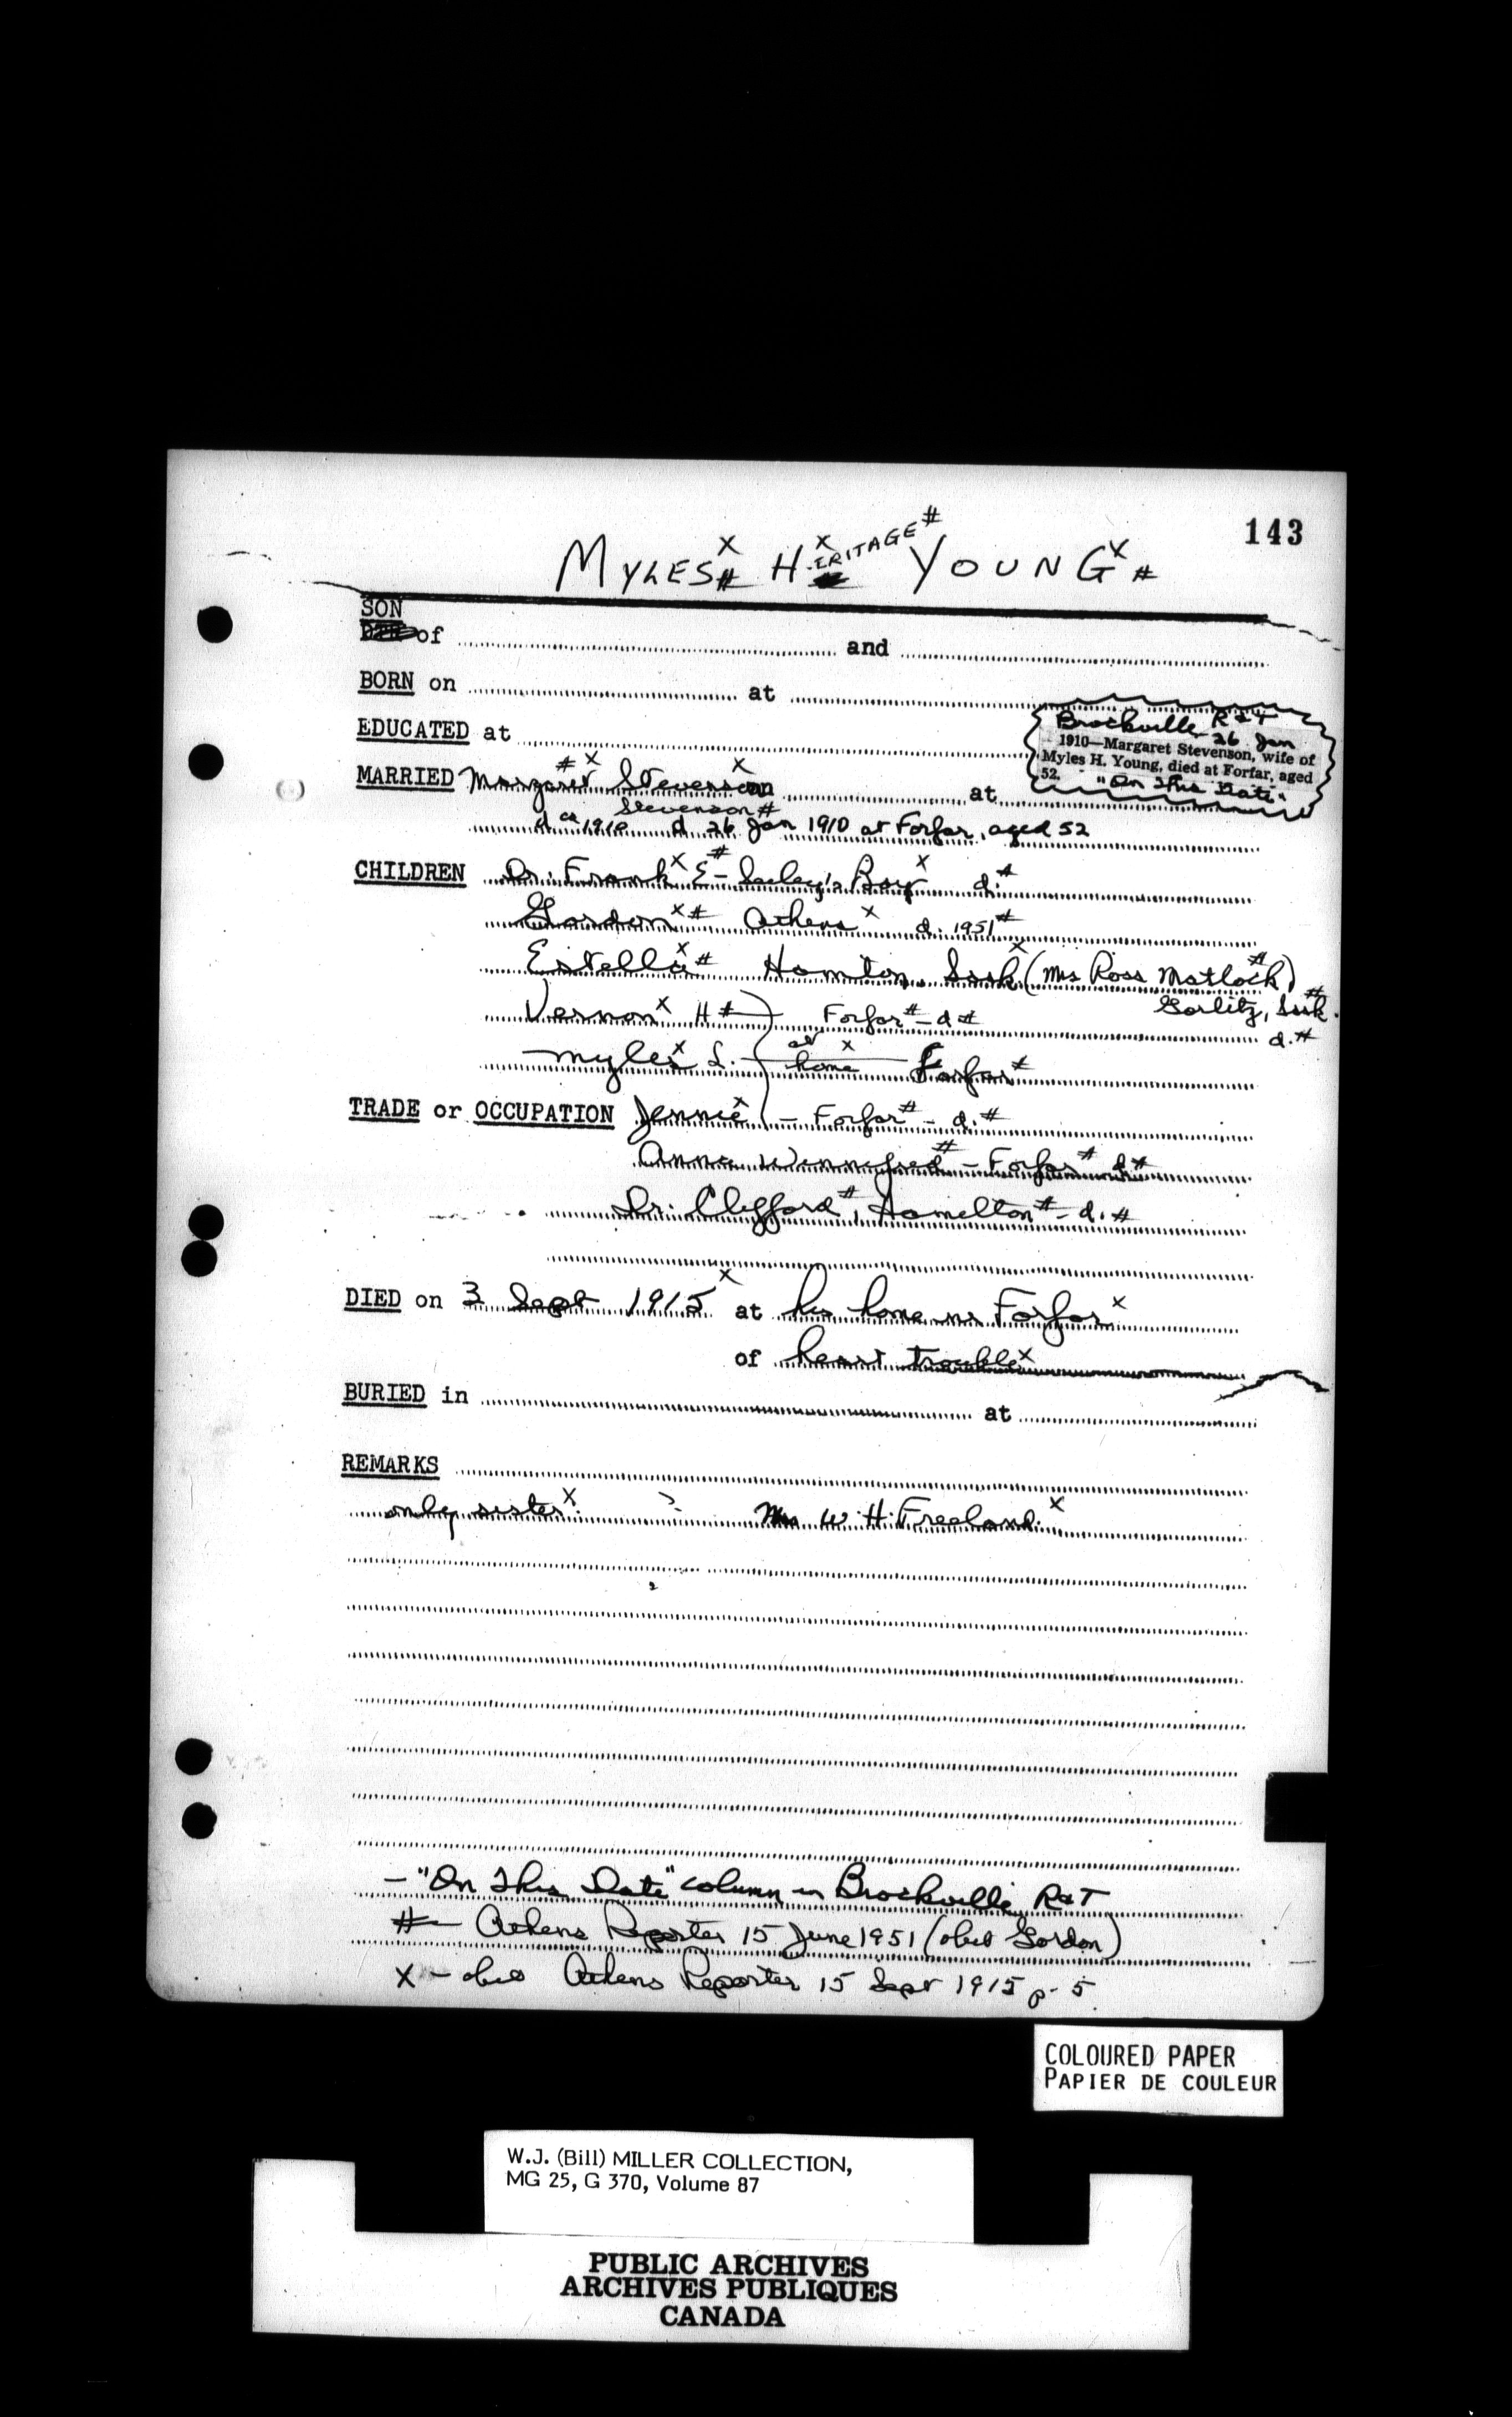 143
MYLES x # H x ERITAGE # YOUNG x #
SON
of ... and ...
BORN on ... at ...
EDUCATED at ...
Brockville R&T
26 Jan
1910—Margaret Stevenson, wife of
Myles H. Young, died at Forfar, aged
52.
"On This Date"
MARRIED Margaret # x Steverson x at
Stevenson #
d ca 1910 d 26 Jan 1910 at Forfar, aged 52
CHILDREN Dr. Frank x E # - Seeley's Bay x d. #
Gordon x # Athens x d. 1951 #
Estella x # Hamton, Sask x (Mrs Ross Matlock #)
Gorlitz, Sask. #
d. #
Vernon x H # Forfar # - d #
Myles x L. at home x Forfar #
TRADE or OCCUPATION Jennie x - Forfar # - d. #
Anna Winnefred # - Forfar # d #
Dr. Clifford #, Hamilton # - d. #
DIED on 3 Sept 1915 x at his home nr Forfar x
of heart trouble x
BURIED in ... at ...
REMARKS
only sister x : Mrs W. H. Freeland. x
- "On This Date" column in Brockville R&T
# - Athens Reporter 15 June 1951 (obit Gordon)
x - obit Athens Reporter 15 Sept 1915 p. 5.
COLOURED PAPER
PAPIER DE COULEUR
W.J. (Bill) MILLER COLLECTION,
MG 25, G 370, Volume 87
PUBLIC ARCHIVES
ARCHIVES PUBLIQUES
CANADA